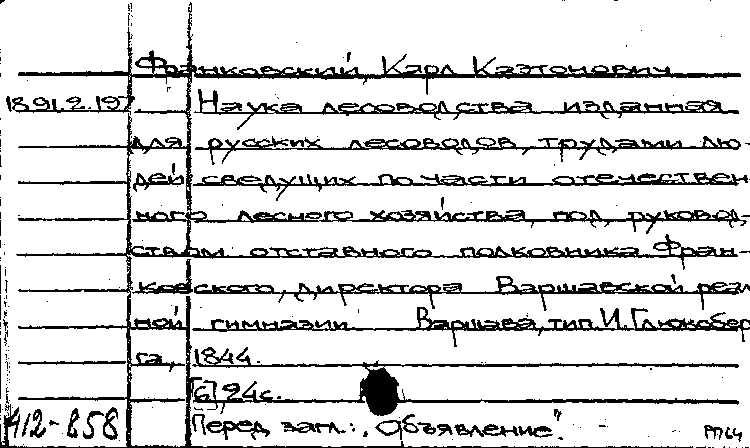 Франковский, Карл Каэтонович
1891.2.197.
Наука лесоводства изданная
для русских лесоводов, трудами лю-
дей сведущих по части отечествен-
ного лесного хозяйства, под руковод-
ством отставного полковника Фран-
ковского, директора Варшавской реал
ной гимназии. Варшава, тип. И. Глюксбер
га, 1844.
[6], 24с.
412-858
Перед загл.: "Объявление".